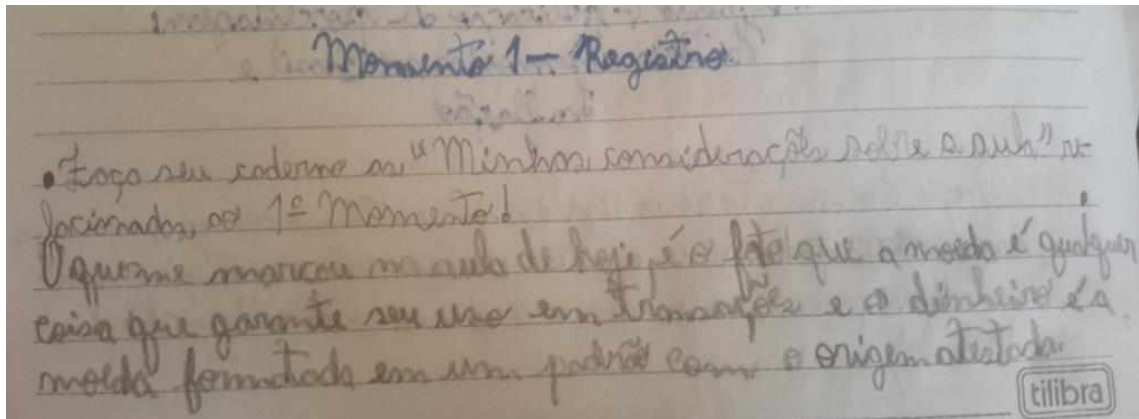 Momento 1 - Registro
• Faça seu caderno as "Minhas considerações sobre a aula" re-
lacionadas, ao 1º Momento!
O que me marcou na aula de hoje, é o fato que a moeda é qualquer
coisa que garante seu uso em transações e o dinheiro é a
moeda formatada em um padrão com o origem atestada.
tilibra